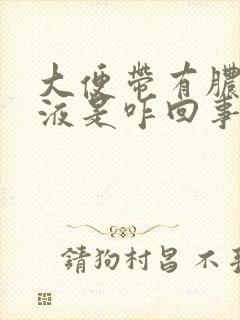 大便带有脓
液是咋回事
請狗村呂 不